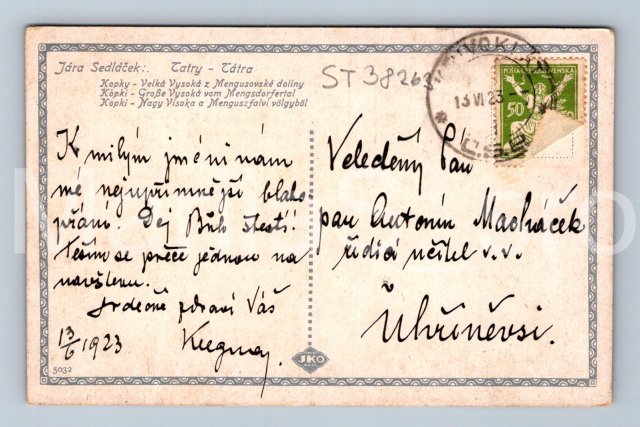 Jára Sedláček:. Tatry - Tátra
Kopky - Velká Vysoká z Mengusovské doliny
Kopki - Große Vysoká vom Mengsdorfertal
Kopki - Nagy Visoka a Menguszfalvi völgyből
ST 38263
13 VI 23
Č.S.R.
POSTA ČESKOSLOVENSKÁ
50
K milým jměninám
mé nejupřímnější blaho
přání. Dej Bůh štěstí!
Těším se přece jednou na
návštěvu.
Srdečně zdraví Váš
13/6 1923
Veleděný Pan
pan Antonín Macháček
řídící učitel v. v.
Úhříněvsi.
JKO
5032